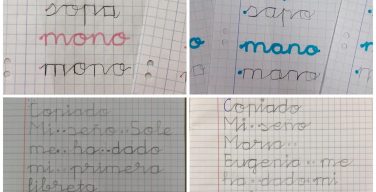 sopa
mono
mono
sapo
mano
mano
Copiado
Mi..seño..Sole
me..ha..dado
mi..primera
libreta
Copiado
Mi..seño
María..
Eugenia..me
ha..dado..mi